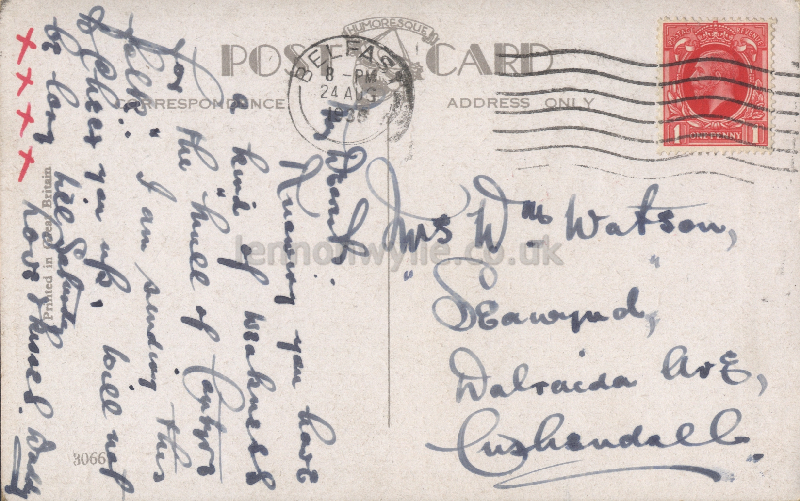 HUMORESQUE
POST CARD
CORRESPONDENCE.
ADDRESS ONLY
BELFAST
8 - PM
24 AUG
POSTAGE REVENUE
1 ONE PENNY 1
My
Knowing you have
a kind of weakness
for the "Mull of Cantyre
Walk" I am sending this
to cheer you up, will not
be long till Saturday
Love & kisses. Daddy
x x x x
Mrs Wm Watson,
"Seawynd,"
Dalraida Ave,
Cushendall
Printed in Great Britain
3066
lennonwylie.co.uk